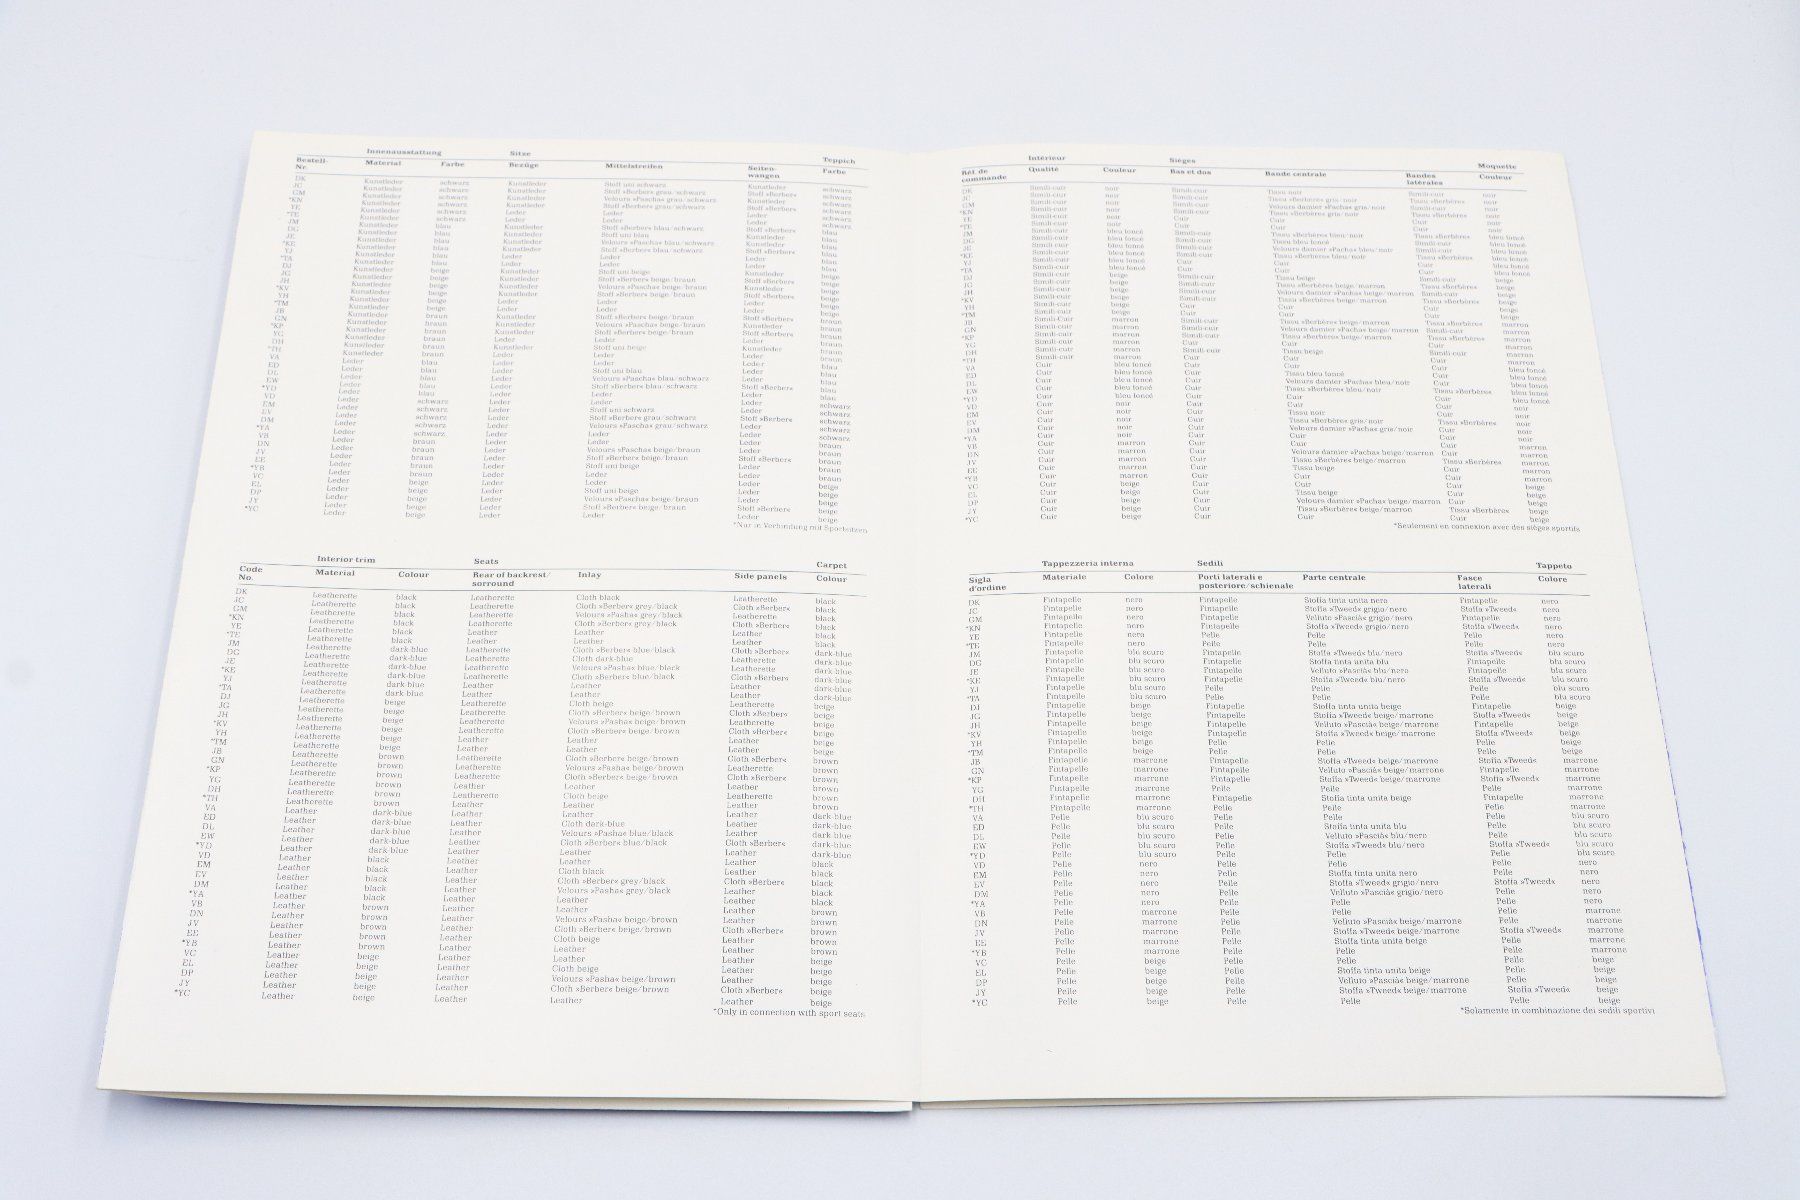 Innenausstattung Sitze Teppich
Bestell-Nr. Material Farbe Bezüge Mittelstreifen Seiten-wangen Farbe
DK Kunstleder schwarz Kunstleder Stoff uni schwarz Kunstleder schwarz
JC Kunstleder schwarz Kunstleder Stoff »Berber« grau/schwarz Stoff »Berber« schwarz
GM Kunstleder schwarz Kunstleder Velours »Pascha« grau/schwarz Kunstleder schwarz
*KN Kunstleder schwarz Kunstleder Stoff »Berber« grau/schwarz Stoff »Berber« schwarz
YE Kunstleder schwarz Leder Leder Leder schwarz
*TE Kunstleder schwarz Leder Leder Leder schwarz
JM Kunstleder blau Kunstleder Stoff »Berber« blau/schwarz Stoff »Berber« blau
DG Kunstleder blau Kunstleder Stoff uni blau Kunstleder blau
JE Kunstleder blau Kunstleder Velours »Pascha« blau/schwarz Kunstleder blau
*KE Kunstleder blau Kunstleder Stoff »Berber« blau/schwarz Stoff »Berber« blau
YJ Kunstleder blau Leder Leder Leder blau
*TA Kunstleder blau Leder Leder Leder blau
DJ Kunstleder beige Kunstleder Stoff uni beige Kunstleder beige
JG Kunstleder beige Kunstleder Stoff »Berber« beige/braun Stoff »Berber« beige
JH Kunstleder beige Kunstleder Velours »Pascha« beige/braun Kunstleder beige
*KV Kunstleder beige Kunstleder Stoff »Berber« beige/braun Stoff »Berber« beige
YH Kunstleder beige Leder Leder Leder beige
*TM Kunstleder beige Leder Leder Leder beige
JB Kunstleder braun Kunstleder Stoff »Berber« beige/braun Stoff »Berber« braun
GN Kunstleder braun Kunstleder Velours »Pascha« beige/braun Kunstleder braun
*KP Kunstleder braun Kunstleder Stoff »Berber« beige/braun Stoff »Berber« braun
YG Kunstleder braun Leder Leder Leder braun
DH Kunstleder braun Kunstleder Stoff uni beige Kunstleder braun
*TH Kunstleder braun Leder Leder Leder braun
VA Leder blau Leder Leder Leder blau
ED Leder blau Leder Stoff uni blau Leder blau
DL Leder blau Leder Velours »Pascha« blau/schwarz Leder blau
EW Leder blau Leder Stoff »Berber« blau/schwarz Stoff »Berber« blau
*YD Leder blau Leder Leder Leder blau
VD Leder schwarz Leder Leder Leder schwarz
EM Leder schwarz Leder Stoff uni schwarz Leder schwarz
EV Leder schwarz Leder Stoff »Berber« grau/schwarz Stoff »Berber« schwarz
DM Leder schwarz Leder Velours »Pascha« grau/schwarz Leder schwarz
*YA Leder schwarz Leder Leder Leder schwarz
VB Leder braun Leder Leder Leder braun
DN Leder braun Leder Velours »Pascha« beige/braun Leder braun
JV Leder braun Leder Stoff »Berber« beige/braun Stoff »Berber« braun
EE Leder braun Leder Stoff uni beige Leder braun
*YB Leder braun Leder Leder Leder braun
VC Leder beige Leder Leder Leder beige
EL Leder beige Leder Stoff uni beige Leder beige
DP Leder beige Leder Velours »Pascha« beige/braun Leder beige
JY Leder beige Leder Stoff »Berber« beige/braun Stoff »Berber« beige
*YC Leder beige Leder Leder Leder beige
*Nur in Verbindung mit Sportsitzen
Intérieur Sièges Moquette
Réf. de commande Qualité Couleur Bas et dos Bande centrale Bandes latérales Couleur
DK Simili-cuir noir Simili-cuir Tissu noir Simili-cuir noir
JC Simili-cuir noir Simili-cuir Tissu »Berbère« gris/noir Tissu »Berbère« noir
GM Simili-cuir noir Simili-cuir Velours damier »Pacha« gris/noir Simili-cuir noir
*KN Simili-cuir noir Simili-cuir Tissu »Berbère« gris/noir Tissu »Berbère« noir
YE Simili-cuir noir Cuir Cuir Cuir noir
*TE Simili-cuir noir Cuir Cuir Cuir noir
JM Simili-cuir bleu foncé Simili-cuir Tissu »Berbère« bleu/noir Tissu »Berbère« bleu foncé
DG Simili-cuir bleu foncé Simili-cuir Tissu bleu foncé Simili-cuir bleu foncé
JE Simili-cuir bleu foncé Simili-cuir Velours damier »Pacha« bleu/noir Simili-cuir bleu foncé
*KE Simili-cuir bleu foncé Simili-cuir Tissu »Berbère« bleu/noir Tissu »Berbère« bleu foncé
YJ Simili-cuir bleu foncé Cuir Cuir Cuir bleu foncé
*TA Simili-cuir bleu foncé Cuir Cuir Cuir bleu foncé
DJ Simili-cuir beige Simili-cuir Tissu beige Simili-cuir beige
JG Simili-cuir beige Simili-cuir Tissu »Berbère« beige/marron Tissu »Berbère« beige
JH Simili-cuir beige Simili-cuir Velours damier »Pacha« beige/marron Simili-cuir beige
*KV Simili-cuir beige Simili-cuir Tissu »Berbère« beige/marron Tissu »Berbère« beige
YH Simili-cuir beige Cuir Cuir Cuir beige
*TM Simili-cuir beige Cuir Cuir Cuir beige
JB Simili-cuir marron Simili-cuir Tissu »Berbère« beige/marron Tissu »Berbère« marron
GN Simili-cuir marron Simili-cuir Velours damier »Pacha« beige/marron Simili-cuir marron
*KP Simili-cuir marron Simili-cuir Tissu »Berbère« beige/marron Tissu »Berbère« marron
YG Simili-cuir marron Cuir Cuir Cuir marron
DH Simili-cuir marron Simili-cuir Tissu beige Simili-cuir marron
*TH Simili-cuir marron Cuir Cuir Cuir marron
VA Cuir bleu foncé Cuir Cuir Cuir bleu foncé
ED Cuir bleu foncé Cuir Tissu bleu foncé Cuir bleu foncé
DL Cuir bleu foncé Cuir Velours damier »Pacha« bleu/noir Cuir bleu foncé
EW Cuir bleu foncé Cuir Tissu »Berbère« bleu/noir Tissu »Berbère« bleu foncé
*YD Cuir bleu foncé Cuir Cuir Cuir bleu foncé
VD Cuir noir Cuir Cuir Cuir noir
EM Cuir noir Cuir Tissu noir Cuir noir
EV Cuir noir Cuir Tissu »Berbère« gris/noir Tissu »Berbère« noir
DM Cuir noir Cuir Velours damier »Pacha« gris/noir Cuir noir
*YA Cuir noir Cuir Cuir Cuir noir
VB Cuir marron Cuir Cuir Cuir marron
DN Cuir marron Cuir Velours damier »Pacha« beige/marron Cuir marron
JV Cuir marron Cuir Tissu »Berbère« beige/marron Tissu »Berbère« marron
EE Cuir marron Cuir Tissu beige Cuir marron
*YB Cuir marron Cuir Cuir Cuir marron
VC Cuir beige Cuir Cuir Cuir beige
EL Cuir beige Cuir Tissu beige Cuir beige
DP Cuir beige Cuir Velours damier »Pacha« beige/marron Cuir beige
JY Cuir beige Cuir Tissu »Berbère« beige/marron Tissu »Berbère« beige
*YC Cuir beige Cuir Cuir Cuir beige
*Seulement en connexion avec des sièges sportifs
Interior trim Seats Carpet
Code No. Material Colour Rear of backrest/sorround Inlay Side panels Colour
DK Leatherette black Leatherette Cloth black Leatherette black
JC Leatherette black Leatherette Cloth »Berber« grey/black Cloth »Berber« black
GM Leatherette black Leatherette Velours »Pasha« grey/black Leatherette black
*KN Leatherette black Leatherette Cloth »Berber« grey/black Cloth »Berber« black
YE Leatherette black Leather Leather Leather black
*TE Leatherette black Leather Leather Leather black
JM Leatherette dark-blue Leatherette Cloth »Berber« blue/black Cloth »Berber« dark-blue
DG Leatherette dark-blue Leatherette Cloth dark-blue Leatherette dark-blue
JE Leatherette dark-blue Leatherette Velours »Pasha« blue/black Leatherette dark-blue
*KE Leatherette dark-blue Leatherette Cloth »Berber« blue/black Cloth »Berber« dark-blue
YJ Leatherette dark-blue Leather Leather Leather dark-blue
*TA Leatherette dark-blue Leather Leather Leather dark-blue
DJ Leatherette beige Leatherette Cloth beige Leatherette beige
JG Leatherette beige Leatherette Cloth »Berber« beige/brown Cloth »Berber« beige
JH Leatherette beige Leatherette Velours »Pasha« beige/brown Leatherette beige
*KV Leatherette beige Leatherette Cloth »Berber« beige/brown Cloth »Berber« beige
YH Leatherette beige Leather Leather Leather beige
*TM Leatherette beige Leather Leather Leather beige
JB Leatherette brown Leatherette Cloth »Berber« beige/brown Cloth »Berber« brown
GN Leatherette brown Leatherette Velours »Pasha« beige/brown Leatherette brown
*KP Leatherette brown Leatherette Cloth »Berber« beige/brown Cloth »Berber« brown
YG Leatherette brown Leather Leather Leather brown
DH Leatherette brown Leatherette Cloth beige Leatherette brown
*TH Leatherette brown Leather Leather Leather brown
VA Leather dark-blue Leather Leather Leather dark-blue
ED Leather dark-blue Leather Cloth dark-blue Leather dark-blue
DL Leather dark-blue Leather Velours »Pasha« blue/black Leather dark-blue
EW Leather dark-blue Leather Cloth »Berber« blue/black Cloth »Berber« dark-blue
*YD Leather dark-blue Leather Leather Leather dark-blue
VD Leather black Leather Leather Leather black
EM Leather black Leather Cloth black Leather black
EV Leather black Leather Cloth »Berber« grey/black Cloth »Berber« black
DM Leather black Leather Velours »Pasha« grey/black Leather black
*YA Leather black Leather Leather Leather black
VB Leather brown Leather Leather Leather brown
DN Leather brown Leather Velours »Pasha« beige/brown Leather brown
JV Leather brown Leather Cloth »Berber« beige/brown Cloth »Berber« brown
EE Leather brown Leather Cloth beige Leather brown
*YB Leather brown Leather Leather Leather brown
VC Leather beige Leather Leather Leather beige
EL Leather beige Leather Cloth beige Leather beige
DP Leather beige Leather Velours »Pasha« beige/brown Leather beige
JY Leather beige Leather Cloth »Berber« beige/brown Cloth »Berber« beige
*YC Leather beige Leather Leather Leather beige
*Only in connection with sport seats
Tappezzeria interna Sedili Tappeto
Sigla d'ordine Materiale Colore Porti laterali e posteriore/schienale Parte centrale Fasce laterali Colore
DK Fintapelle nero Fintapelle Stoffa tinta unita nero Fintapelle nero
JC Fintapelle nero Fintapelle Stoffa »Tweed« grigio/nero Stoffa »Tweed« nero
GM Fintapelle nero Fintapelle Velluto »Pascià« grigio/nero Fintapelle nero
*KN Fintapelle nero Fintapelle Stoffa »Tweed« grigio/nero Stoffa »Tweed« nero
YE Fintapelle nero Pelle Pelle Pelle nero
*TE Fintapelle nero Pelle Pelle Pelle nero
JM Fintapelle blu scuro Fintapelle Stoffa »Tweed« blu/nero Stoffa »Tweed« blu scuro
DG Fintapelle blu scuro Fintapelle Stoffa tinta unita blu Fintapelle blu scuro
JE Fintapelle blu scuro Fintapelle Velluto »Pascià« blu/nero Fintapelle blu scuro
*KE Fintapelle blu scuro Fintapelle Stoffa »Tweed« blu/nero Stoffa »Tweed« blu scuro
YJ Fintapelle blu scuro Pelle Pelle Pelle blu scuro
*TA Fintapelle blu scuro Pelle Pelle Pelle blu scuro
DJ Fintapelle beige Fintapelle Stoffa tinta unita beige Fintapelle beige
JG Fintapelle beige Fintapelle Stoffa »Tweed« beige/marrone Stoffa »Tweed« beige
JH Fintapelle beige Fintapelle Velluto »Pascià« beige/marrone Fintapelle beige
*KV Fintapelle beige Fintapelle Stoffa »Tweed« beige/marrone Stoffa »Tweed« beige
YH Fintapelle beige Pelle Pelle Pelle beige
*TM Fintapelle beige Pelle Pelle Pelle beige
JB Fintapelle marrone Fintapelle Stoffa »Tweed« beige/marrone Stoffa »Tweed« marrone
GN Fintapelle marrone Fintapelle Velluto »Pascià« beige/marrone Fintapelle marrone
*KP Fintapelle marrone Fintapelle Stoffa »Tweed« beige/marrone Stoffa »Tweed« marrone
YG Fintapelle marrone Pelle Pelle Pelle marrone
DH Fintapelle marrone Fintapelle Stoffa tinta unita beige Fintapelle marrone
*TH Fintapelle marrone Pelle Pelle Pelle marrone
VA Pelle blu scuro Pelle Pelle Pelle blu scuro
ED Pelle blu scuro Pelle Stoffa tinta unita blu Pelle blu scuro
DL Pelle blu scuro Pelle Velluto »Pascià« blu/nero Pelle blu scuro
EW Pelle blu scuro Pelle Stoffa »Tweed« blu/nero Stoffa »Tweed« blu scuro
*YD Pelle blu scuro Pelle Pelle Pelle blu scuro
VD Pelle nero Pelle Pelle Pelle nero
EM Pelle nero Pelle Stoffa tinta unita nero Pelle nero
EV Pelle nero Pelle Stoffa »Tweed« grigio/nero Stoffa »Tweed« nero
DM Pelle nero Pelle Velluto »Pascià« grigio/nero Pelle nero
*YA Pelle nero Pelle Pelle Pelle nero
VB Pelle marrone Pelle Pelle Pelle marrone
DN Pelle marrone Pelle Velluto »Pascià« beige/marrone Pelle marrone
JV Pelle marrone Pelle Stoffa »Tweed« beige/marrone Stoffa »Tweed« marrone
EE Pelle marrone Pelle Stoffa tinta unita beige Pelle marrone
*YB Pelle marrone Pelle Pelle Pelle marrone
VC Pelle beige Pelle Pelle Pelle beige
EL Pelle beige Pelle Stoffa tinta unita beige Pelle beige
DP Pelle beige Pelle Velluto »Pascià« beige/marrone Pelle beige
JY Pelle beige Pelle Stoffa »Tweed« beige/marrone Stoffa »Tweed« beige
*YC Pelle beige Pelle Pelle Pelle beige
*Solamente in combinazione dei sedili sportivi